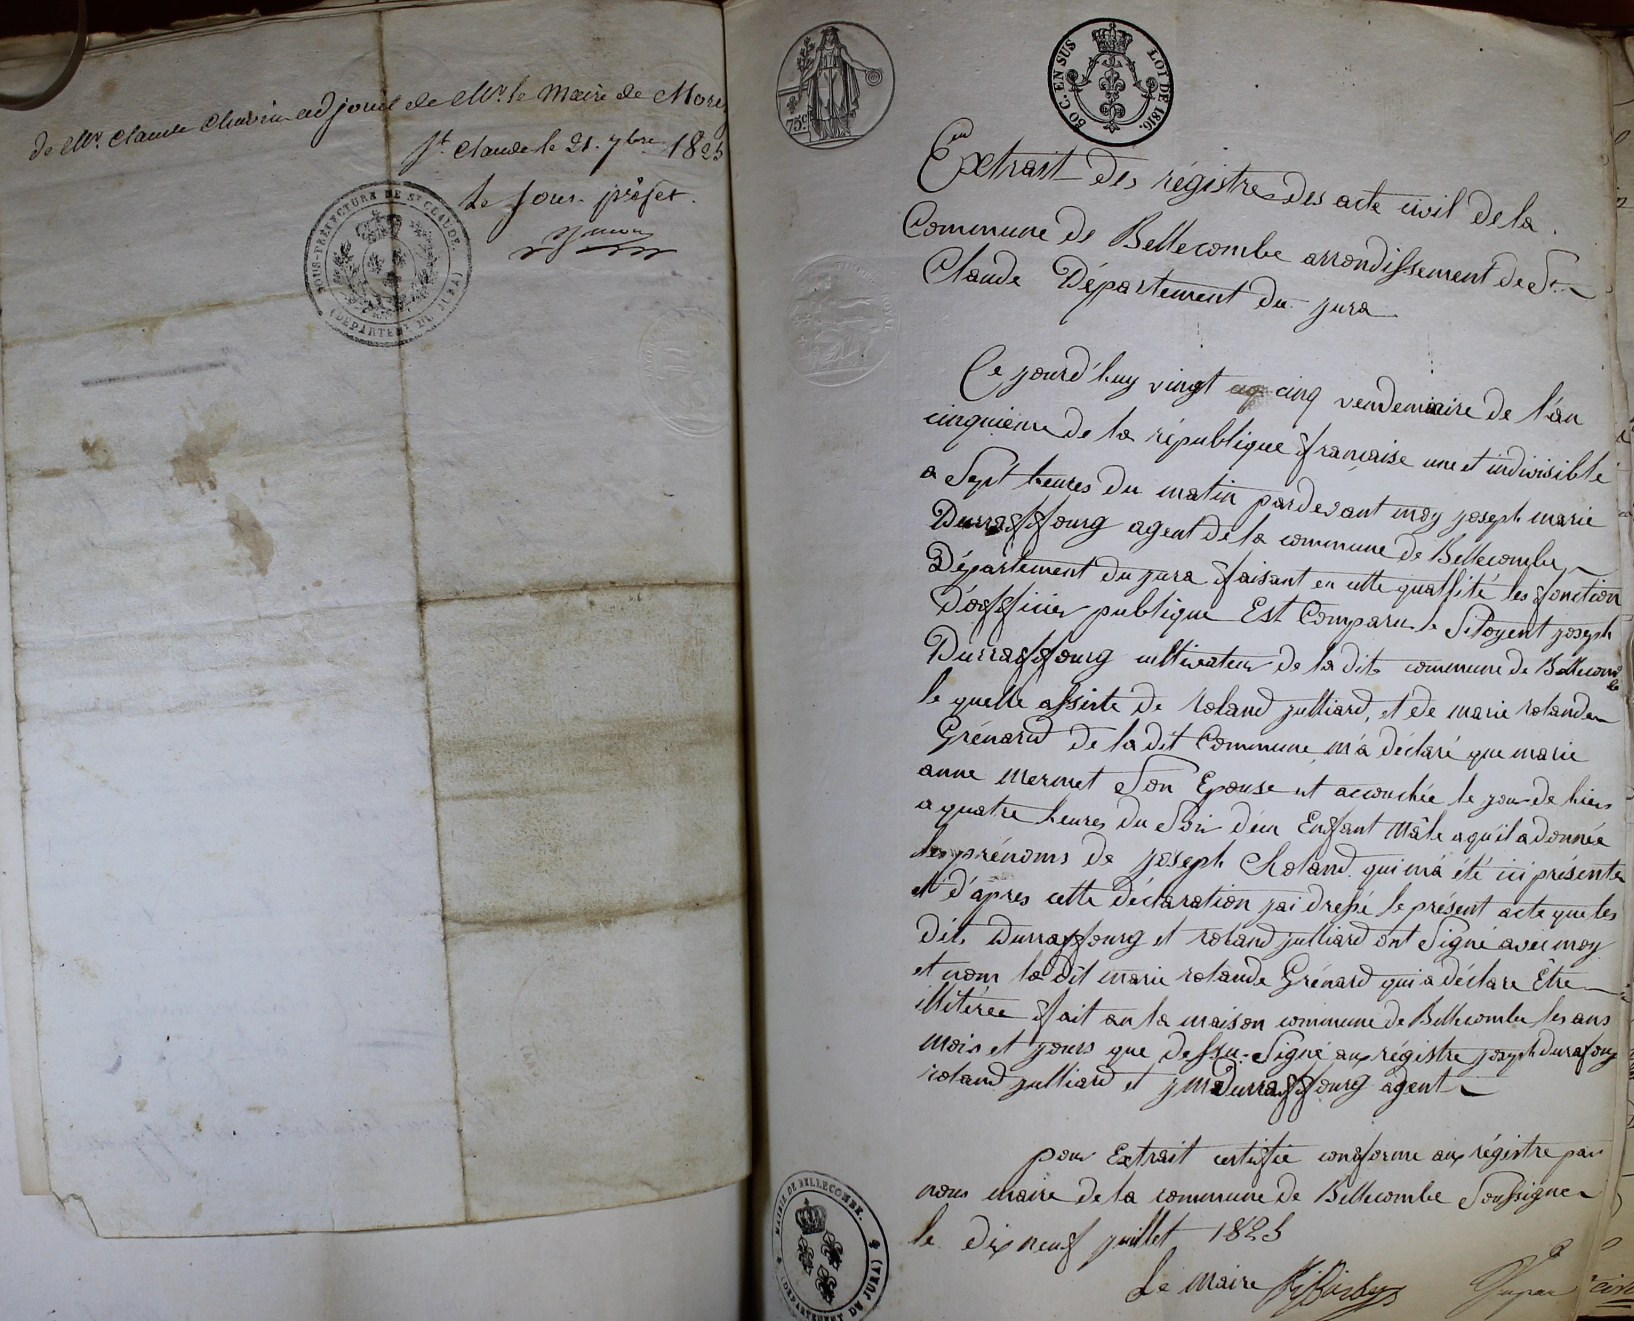 de Mr. Claude Chavin adjoint de Mr. le Maire de More
St. Claude le 21. 7bre 1825
Le Sous-préfet.
SOUS-PRÉFECTURE DE ST CLAUDE.
(DÉPARTEMT DU JURA)
75c
50 C. EN SUS
LOI DE 1816.
Extrait des régistre des acte civil de la
Commune de Bellecombe arrondissement de St.
Claude Département du jura
Ce jourd'huy vingt cinq vendemiaire de l'an
cinquieme de la république francaise une et indivisible
a Sept heures du matin pardevant moy joseph marie
Durraffourg agent de la commune de Bellecombe
Département du jura faisant en cette quallité les fonction
d'officier publique Est Comparu le Sitoyent joseph
Durraffourg cultivateur de la dite commune de Bellecombe
le quelle assiste de roland julliard, et de marie rolande
Grénard de la dit Commune, m'a déclaré que marie
anne mermet Son Epouse est accouchée le jour de hiers
a quatre heures du Soir d'un Enfant Mâle a qu'il a donnée
les prénoms de joseph Roland. qui m'a été ici présenté
et d'apres cette déclaration jai dressé le présent acte que les
dits Durraffourg et roland julliard ont Signé avec moy
et nom la dit marie rolande Grénard qui a déclare Être
illitérée fait an la maison commune de Bellecombe les ans
mois et jours que dessu. Signé aux régistre joseph durafourg
roland julliard et j m Durraffourg agent
pour Extrait certifie conforme aux régistre par
nous maire de la commune de Bellecombe Soussigne
le dix neuf juillet 1825
Le Maire
MAIRIE DE BELLECOMBE.
(DÉPARTEMENT DU JURA)